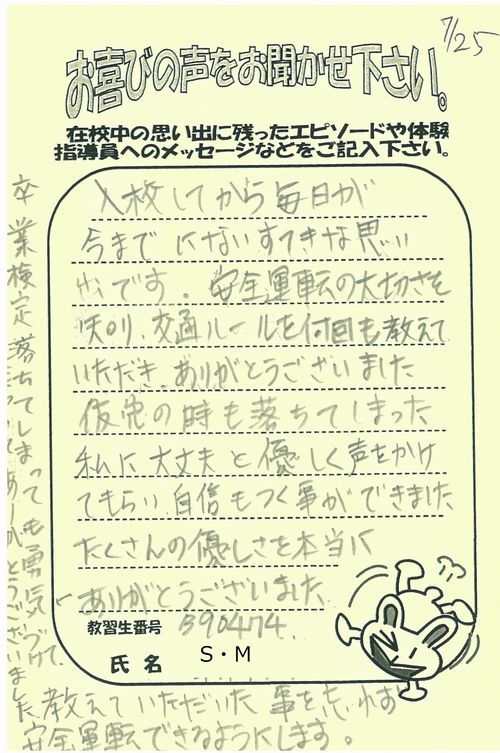 7/25
お喜びの声をお聞かせ下さい。
在校中の思い出に残ったエピソードや体験
指導員へのメッセージなどをご記入下さい。
入校してから毎日が
今までにないすてきな思い
出です。安全運転の大切さを
知り、交通ルールを何回も教えて
いただき、ありがとうございました
仮免の時も落ちてしまった
私に大丈夫と優しく声をかけ
てもらい自信もつく事ができました
たくさんの優しさを本当に
ありがとうございました
教習生番号 390474
氏名 S・M
卒業検定落ちてしまっても勇気づけて
ありがとうございました
教えていただいた事を忘れず
安全運転できるようにします。